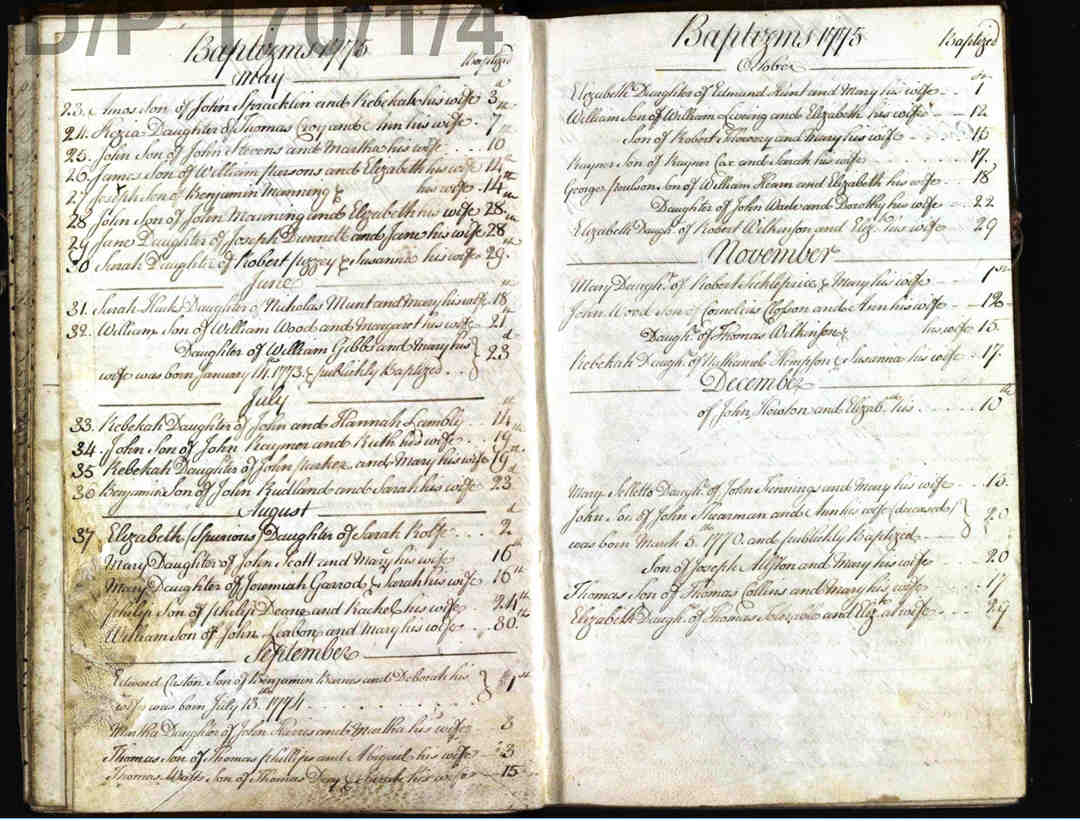 D/P 170/1/4
Baptizms 1775
Baptized
May
23. Amos Son of John Spracklin and Rebekah his wife 3d
24. Kezia Daughter of Thomas Croy and Ann his wife 7th
25. John Son of John Stevens and Martha his wife 10
26. James Son of William Pursons and Elizabeth his wife 14th
27 Joseph Son of Benjamin Manning & his wife 14th
28 John Son of John Manning and Elizabeth his wife 28th
29 Jane Daughter of Joseph Dunnett and Jane his wife 28
30 Sarah Daughter of Robert & Susanna his wife 29th
June
31. Sarah Daughter of Nicholas Munt and Mary his wife 18th
32. William Son of William Wood and Margaret his wife 21
Daughter of William Gibbs and Mary his
wife was born January 14th 1773, & publickly Baptized 23d
July
33. Rebekah Daughter of John and Hannah Lumbly 14th
34. John Son of John Raymer and Ruth his wife 19
35 Rebekah Daughter of John Parker and Mary his wife 19th
36 Benjamin Son of John Rudland and Sarah his wife 23d
August
37 Elizabeth Spurious Daughter of Sarah Rolfe 2d
Mary Daughter of John Scott and Mary his wife 16th
Mary Daughter of Jeremiah Garrod & Sarah his wife 16th
Philip Son of Philip Deane and Rachel his wife 24th
William Son of John and Mary his wife 30th
September
Edward Caston Son of Benjamin and Deborah his
wife was born July 13th 1774 1st
Martha Daughter of John and Martha his wife 3
Thomas Son of Thomas Phillips and Abigail his wife 3
Thomas Son of Thomas & Sarah his wife 15
Baptizms 1775
Baptized
October
Elizabeth Daughter of Edmund Hunt and Mary his wife 1st
William Son of William and Elizabeth his wife 12
Son of Robert and Mary his wife 15
Rayner Son of Rayner Cox and Sarah his wife 17.
George Poulson Son of William Hearn and Elizabeth his wife 18
Daughter of John Wade and Dorothy his wife 22
Elizabeth Daugh. of Robert Wilkinson and Eliz. his wife 29
November
Mary Daughtr. of Robert & Mary his wife 1st
John Wood Son of Cornelius Clopson and Ann his wife 12
Daughr. of Thomas Wilkinson & his wife 15.
Rebekah Daughr. of Nathaniel Simpson & Susanna his wife 17.
December
of John Howton and Elizabth his 10th
Mary Daughr. of John Jennings and Mary his wife 15.
John Son of John Shearman and Ann his wife (deceased)
was born March 5th 1770. and publickly Baptized 20
Son of Joseph Alston and Mary his wife 20
Thomas Son of Thomas Collins and Mary his wife 17
Elizabeth Daughr. of Thomas and Elizth his wife 29